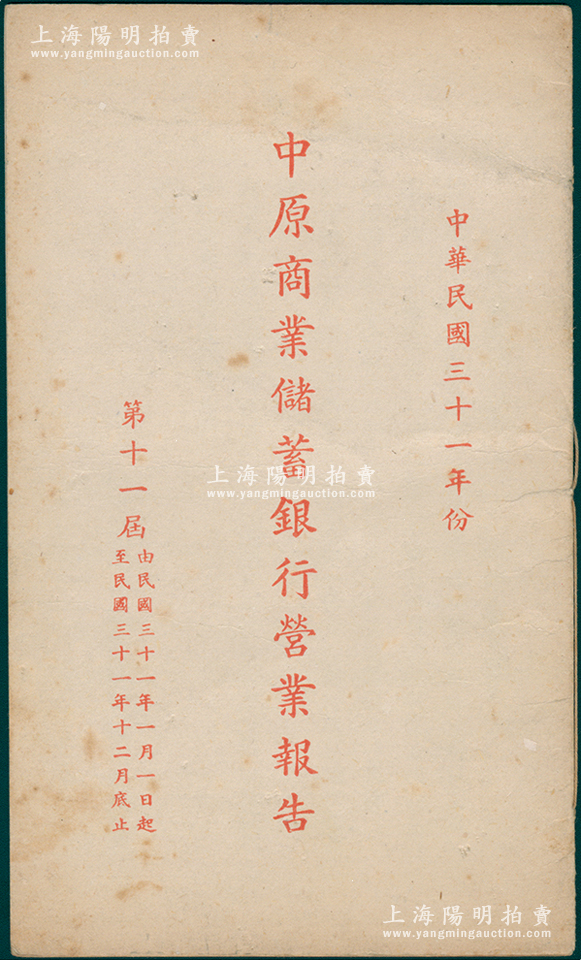 上海陽明拍賣
www.yangmingauction.com
中華民國三十一年份
中原商業儲蓄銀行營業報告
第十一屆
由民國三十一年一月一日起
至民國三十一年十二月底止
上海陽明拍賣
www.yangmingauction.com
上海陽明拍賣
www.yangmingauction.com